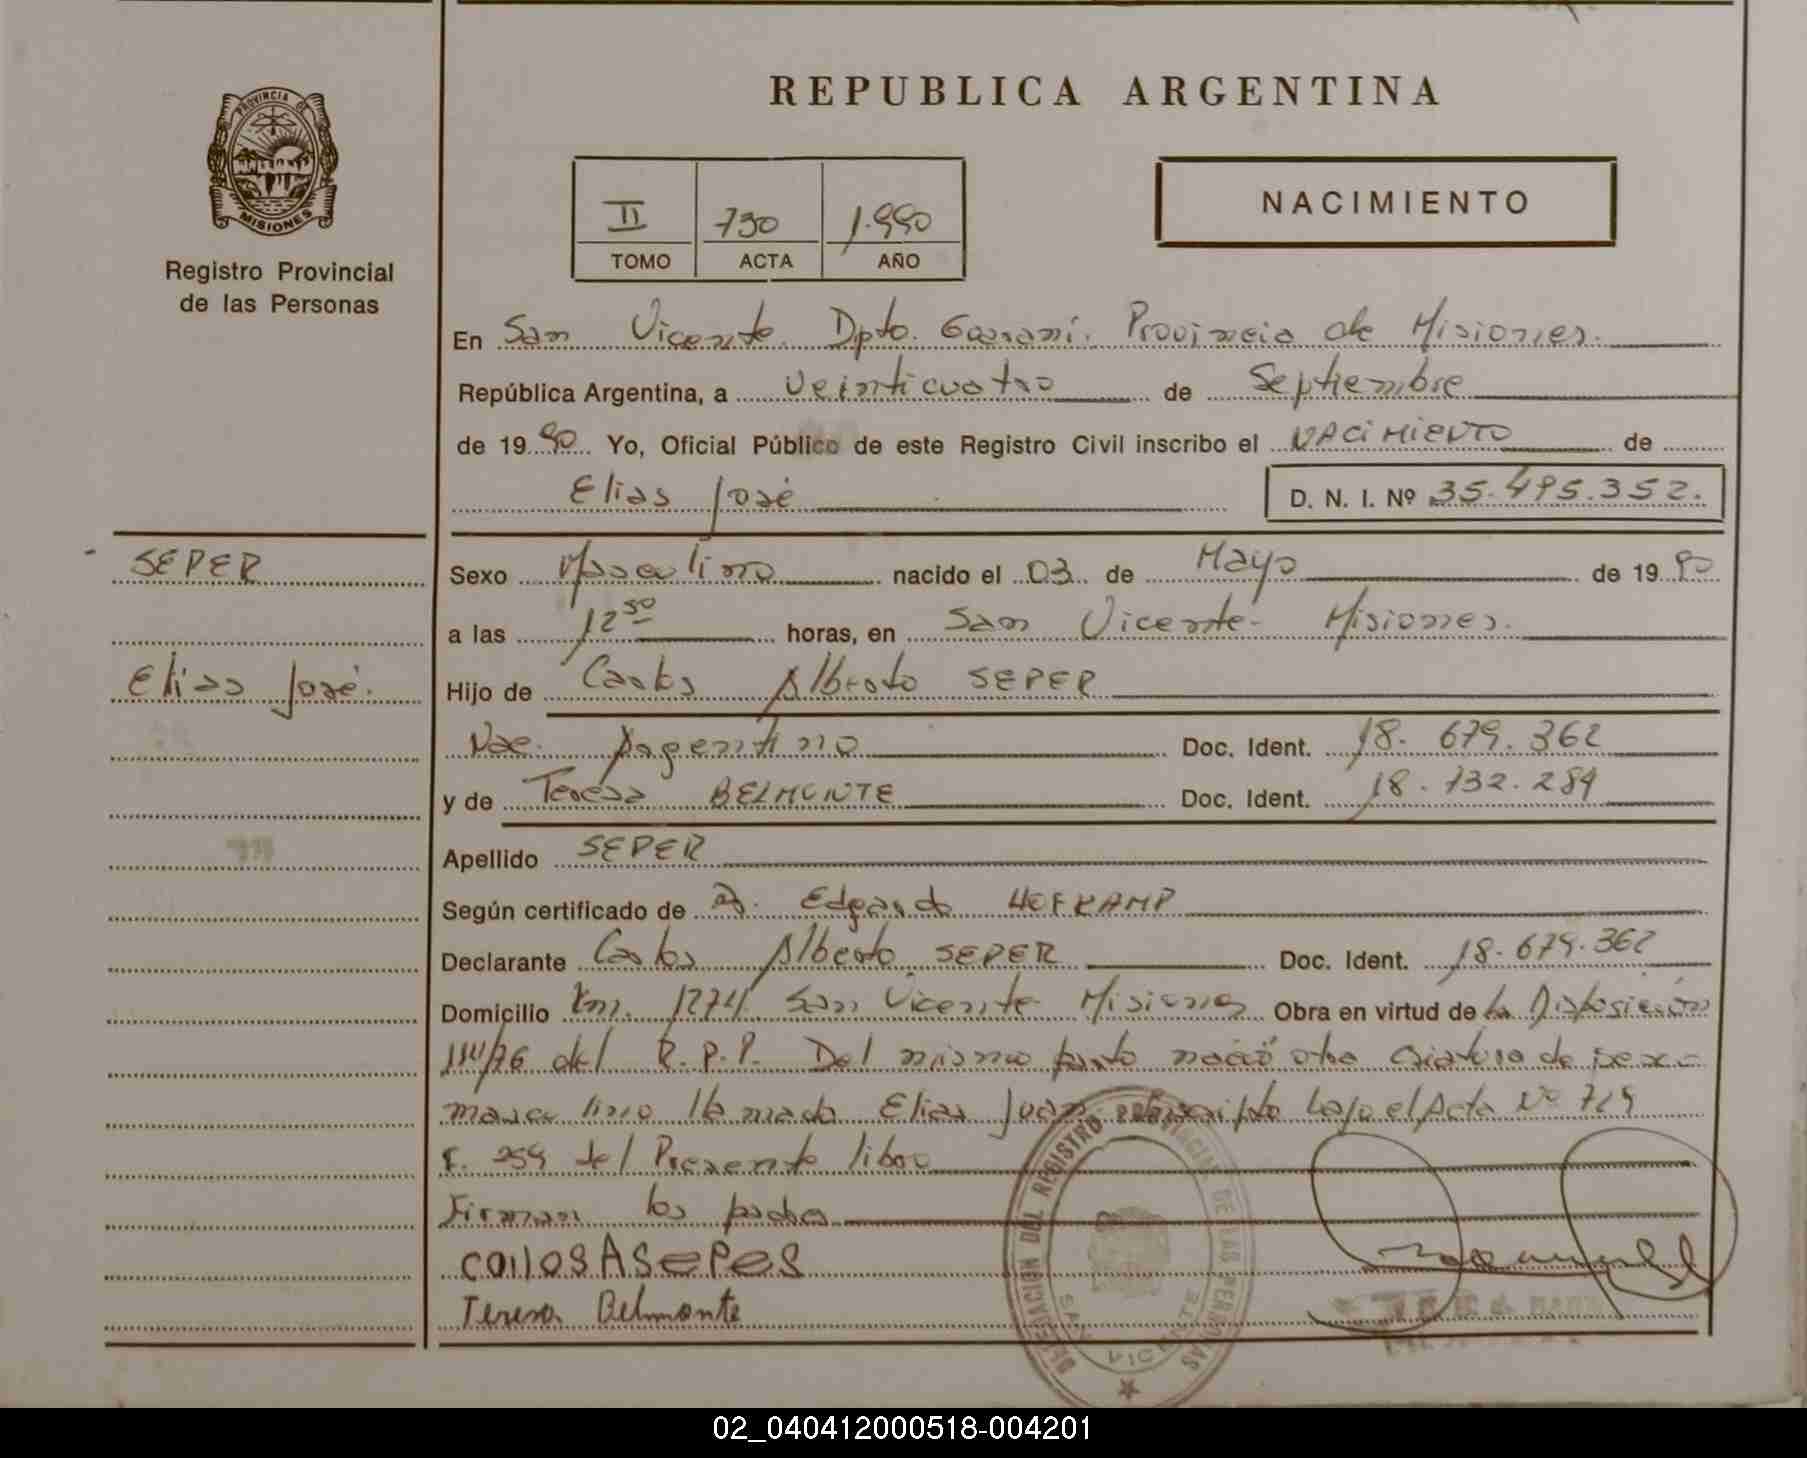 REPUBLICA ARGENTINA
PROVINCIA DE
MISIONES
Registro Provincial
de las Personas
II 730 1.990
TOMO ACTA AÑO
NACIMIENTO
En San Vicente. Dpto. Guaraní. Provincia de Misiones.
República Argentina, a veinticuatro de Septiembre
de 1990 Yo, Oficial Público de este Registro Civil inscribo el NACIMIENTO de
Elias José D. N. I. Nº 35.495.352.
SEPER
Elias José.
Sexo Masculino nacido el 03 de Mayo de 1990
a las 12 50 horas, en San Vicente- Misiones.
Hijo de Carlos Alberto SEPER
Nac. Argentino Doc. Ident. 18. 679. 362
y de Teresa BELMONTE Doc. Ident. 18. 132. 284
Apellido SEPER
Según certificado de Edgardo HOFKAMP
Declarante Carlos Alberto SEPER Doc. Ident. 18. 679. 362
Domicilio Km. 1274. San Vicente- Misiones Obra en virtud de la Disposición
del R.P.P. Del mismo parto nació otra criatura de sexo
masculino llamado Elias Juan bajo el Acta Nº 729
F. 259 del Presente libro
Firman los padres
Carlos A Seper
Teresa Belmonte
DELEGACION DEL REGISTRO PROVINCIAL DE LAS PERSONAS
SAN VICENTE
02_040412000518-004201